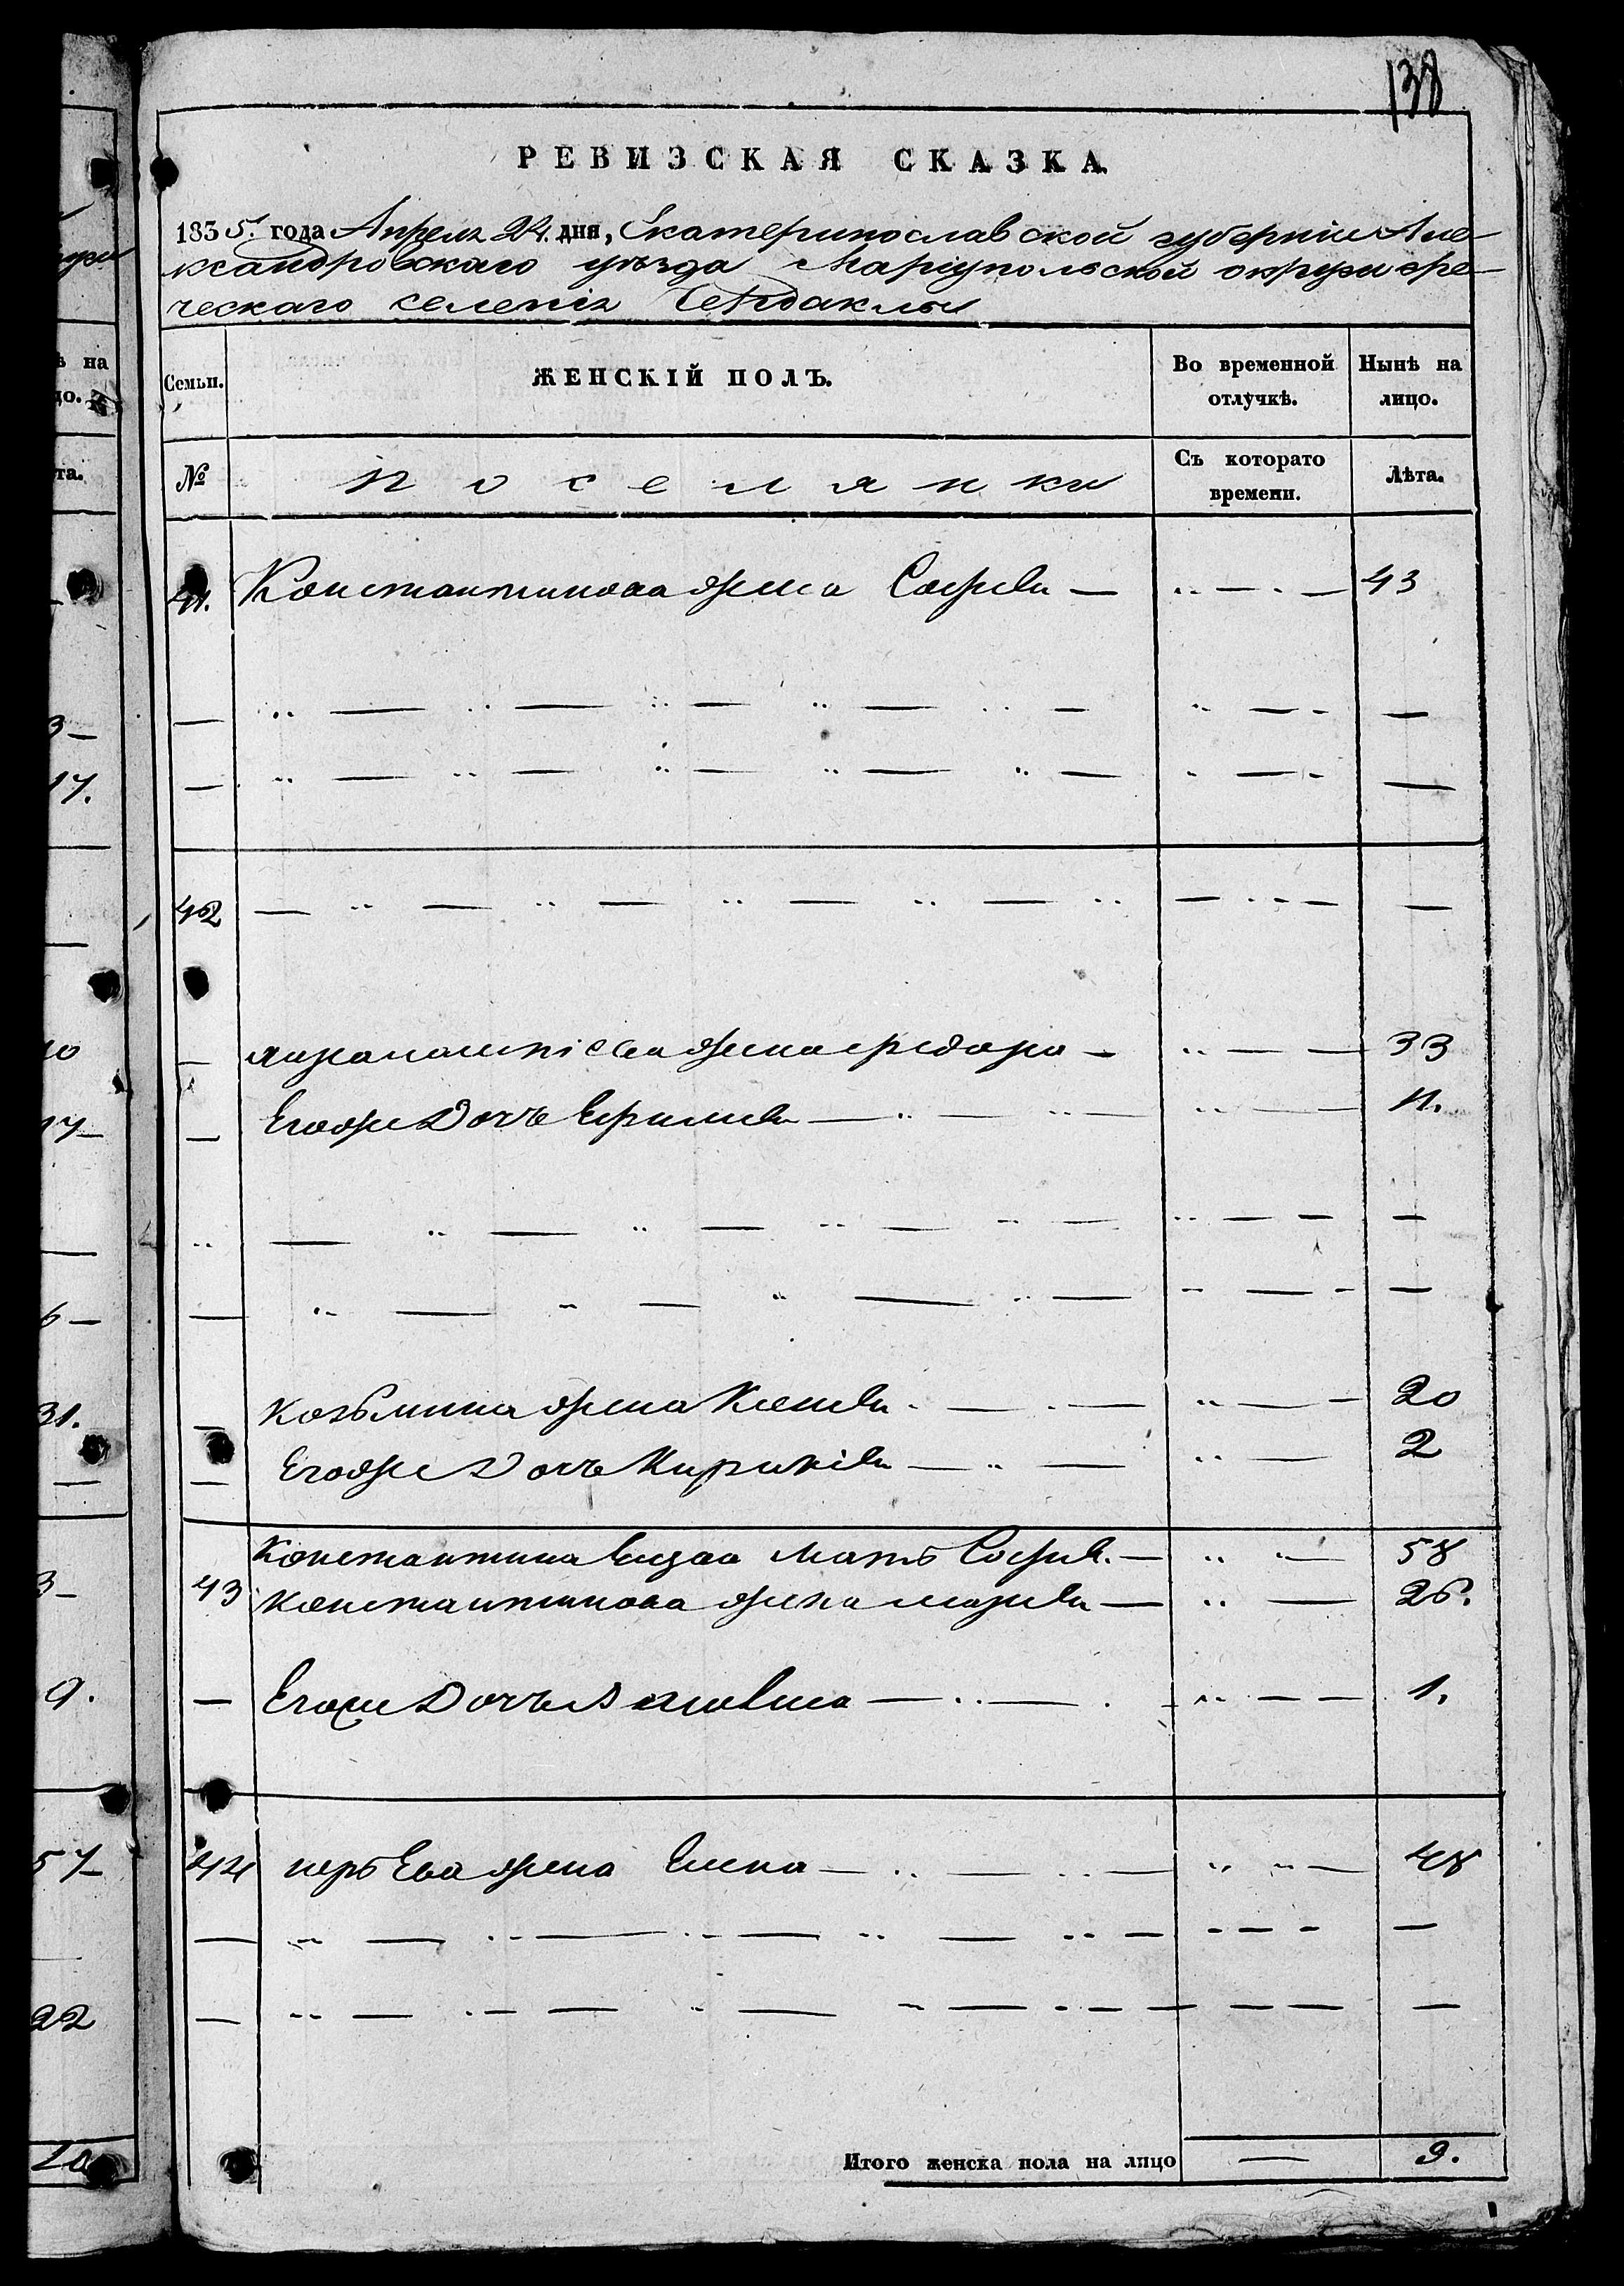 138
РЕВИЗСКАЯ СКАЗКА.
1835. года Апреля 24. дня, Екатеринославской губерніи Але-
ксандровскаго уезда Маріупольской округи гре-
ческаго селенія Чердаклы
Семьи. ЖЕНСКІЙ ПОЛЪ. Во временной отлучкѣ. Нынѣ на лицо.
№ Поселянки Съ котораго времени. Лѣта.
41. Константинова жена Софія — 43
42
жена Федора — 33
Егоже дочь Ефимія — 11.
Козьмина жена Ксенія — 20
Егоже дочь Кирикія — 2
Константина мать Софія — 58
43 Константинова жена Марія — 26.
Егоже дочь — 1.
44 жена Елена — 48
Итого женска пола на лицо — 9.
ѣ на
до.
та.
3 —
17.
10
17 —
6 —
31.
3 —
9.
57 —
22
10